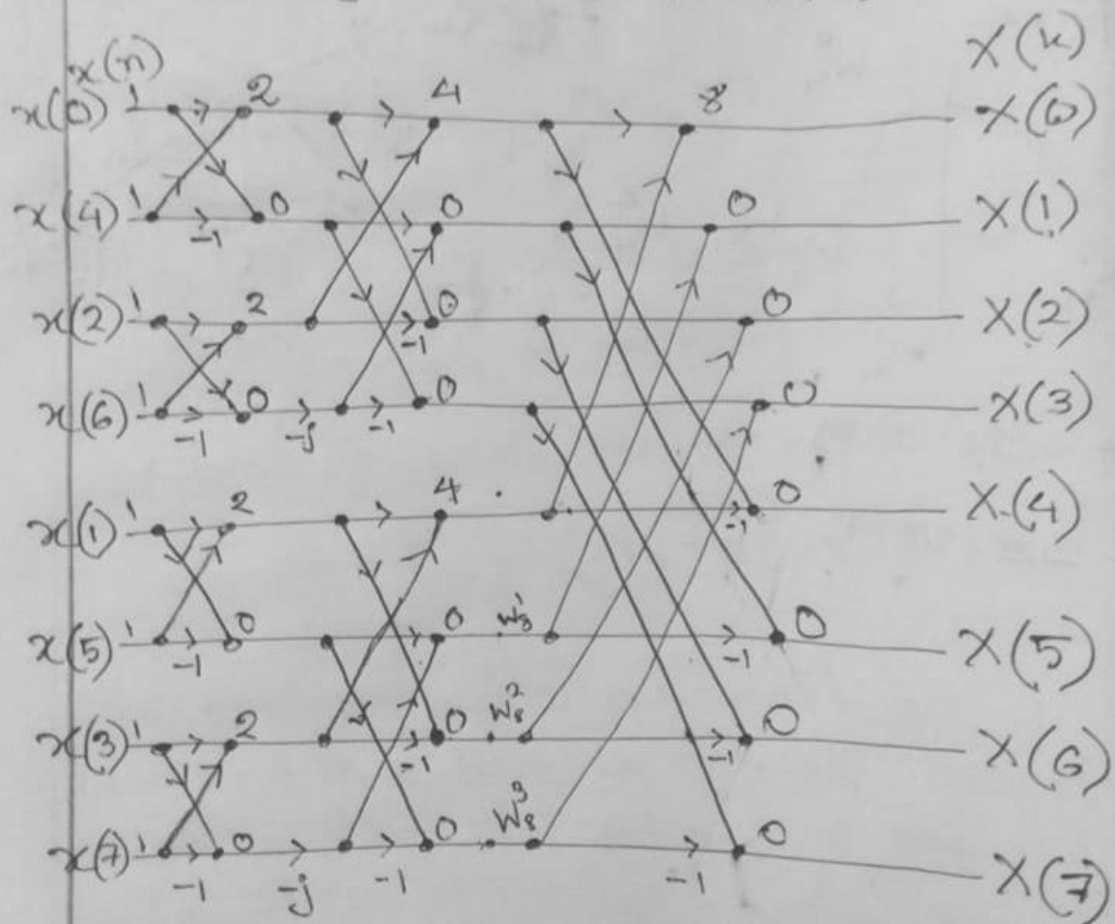 x(n) X(k)
x(0) 1 2 4 8 X(0)
x(4) 1 -1 0 0 0 X(1)
x(2) 1 2 -1 0 0 X(2)
x(6) 1 -1 0 -j -1 0 0 X(3)
x(1) 1 2 4 -1 0 X(4)
x(5) 1 -1 0 0 W₈¹ -1 0 X(5)
x(3) 1 2 -1 0 W₈² -1 0 X(6)
x(7) 1 -1 0 -j -1 0 W₈³ -1 0 X(7)